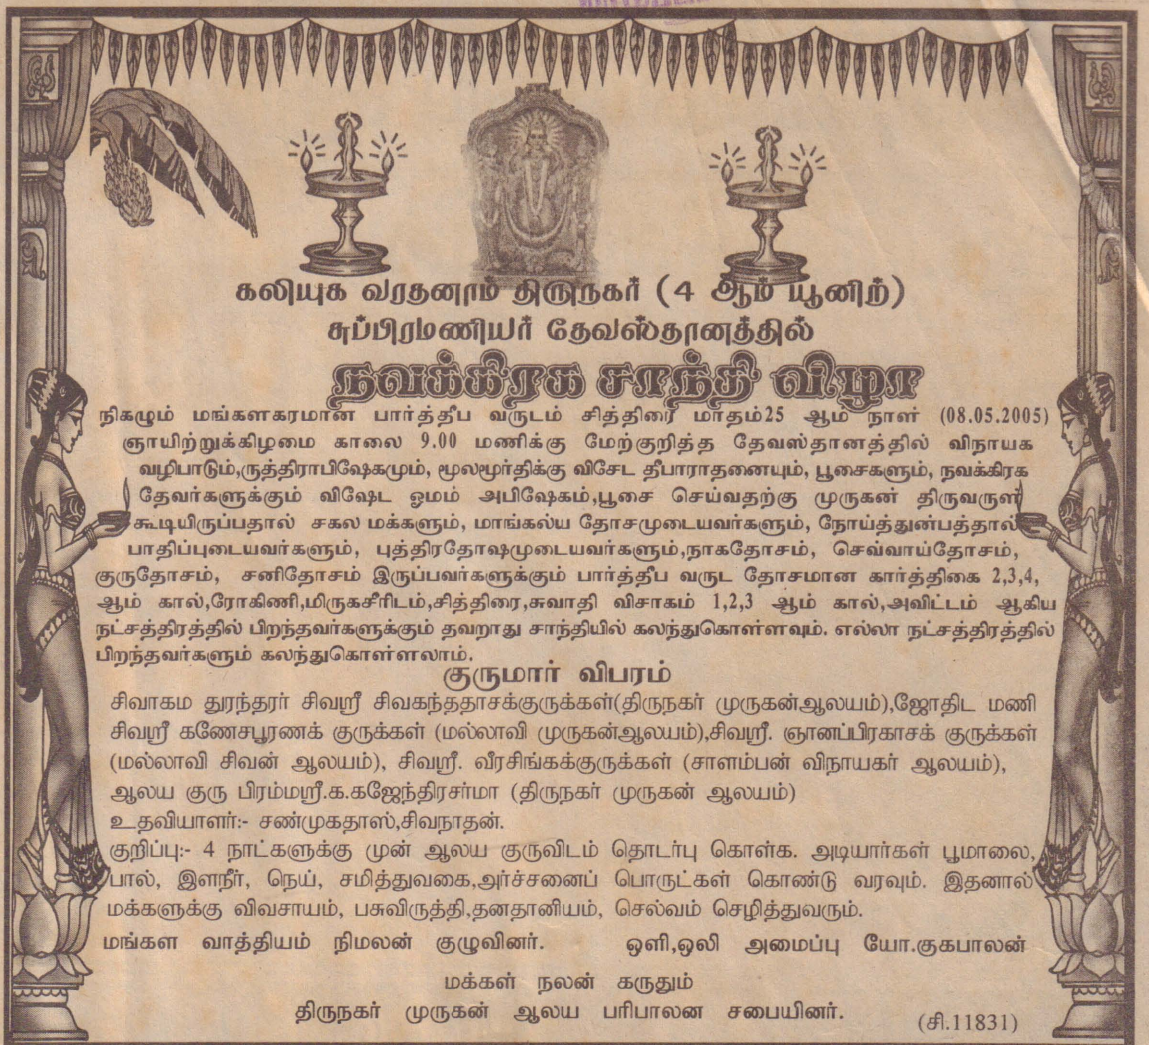 கலியுக வரதனாம் திருநகர் (4 ஆம் யூனிற்)
சுப்பிரமணியர் தேவஸ்தானத்தில்
நவக்கிரக சாந்தி விழா
நிகழும் மங்களகரமான பார்த்தீப வருடம் சித்திரை மாதம்25 ஆம் நாள் (08.05.2005)
ஞாயிற்றுக்கிழமை காலை 9.00 மணிக்கு மேற்குறித்த தேவஸ்தானத்தில் விநாயக
வழிபாடும்,ருத்திராபிஷேகமும், மூலமூர்திக்கு விசேட தீபாராதனையும், பூசைகளும், நவக்கிரக
தேவர்களுக்கும் விஷேட ஓமம் அபிஷேகம்,பூசை செய்வதற்கு முருகன் திருவருள்
கூடியிருப்பதால் சகல மக்களும், மாங்கல்ய தோசமுடையவர்களும், நோய்த்துன்பத்தால்
பாதிப்புடையவர்களும், புத்திரதோஷமுடையவர்களும்,நாகதோசம், செவ்வாய்தோசம்,
குருதோசம், சனிதோசம் இருப்பவர்களுக்கும் பார்த்தீப வருட தோசமான கார்த்திகை 2,3,4,
ஆம் கால்,ரோகிணி,மிருகசீரிடம்,சித்திரை,சுவாதி விசாகம் 1,2,3 ஆம் கால்,அவிட்டம் ஆகிய
நட்சத்திரத்தில் பிறந்தவர்களுக்கும் தவறாது சாந்தியில் கலந்துகொள்ளவும். எல்லா நட்சத்திரத்தில்
பிறந்தவர்களும் கலந்துகொள்ளலாம்.
குருமார் விபரம்
சிவாகம துரந்தரர் சிவஸ்ரீ சிவகந்ததாசக்குருக்கள்(திருநகர் முருகன்ஆலயம்),ஜோதிட மணி
சிவஸ்ரீ கணேசபூரணக் குருக்கள் (மல்லாவி முருகன்ஆலயம்),சிவஸ்ரீ. ஞானப்பிரகாசக் குருக்கள்
(மல்லாவி சிவன் ஆலயம்), சிவஸ்ரீ. வீரசிங்கக்குருக்கள் (சாளம்பன் விநாயகர் ஆலயம்),
ஆலய குரு பிரம்மஸ்ரீ.க.கஜேந்திரசர்மா (திருநகர் முருகன் ஆலயம்)
உதவியாளர்:- சண்முகதாஸ்,சிவநாதன்.
குறிப்பு:- 4 நாட்களுக்கு முன் ஆலய குருவிடம் தொடர்பு கொள்க. அடியார்கள் பூமாலை,
பால், இளநீர், நெய், சமித்துவகை,அர்ச்சனைப் பொருட்கள் கொண்டு வரவும். இதனால்
மக்களுக்கு விவசாயம், பசுவிருத்தி,தனதானியம், செல்வம் செழித்துவரும்.
மங்கள வாத்தியம் நிமலன் குழுவினர். ஒளி,ஒலி அமைப்பு யோ.குகபாலன்
மக்கள் நலன் கருதும்
திருநகர் முருகன் ஆலய பரிபாலன சபையினர்.
(சி.11831)